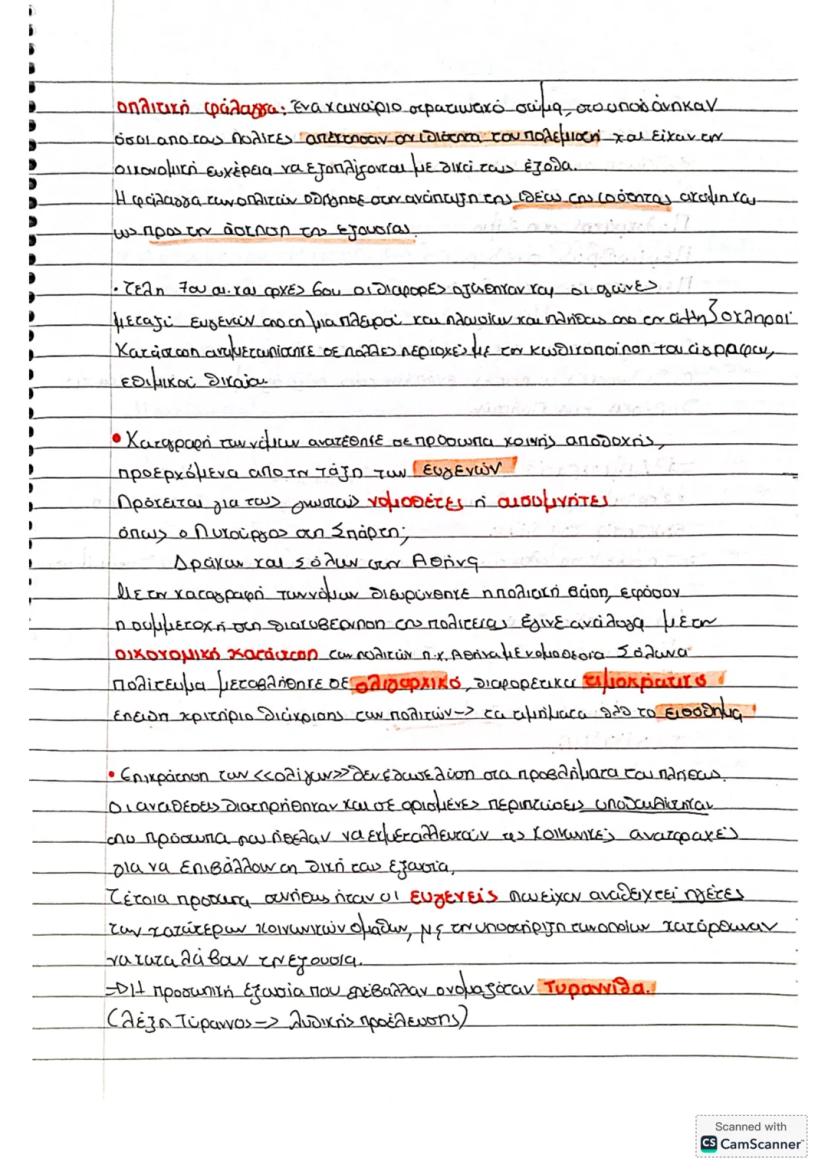 οπλιτική φάλαγγα: Ένα καινούριο στρατιωτικό σώμα, στο οποίο άνηκαν
όσοι απο τους πολίτες απέκτησαν την ιδιότητα του πολεμιστή και είχαν την
οικονομική ευχέρεια να εξοπλίζονται με δικά τους έξοδα.
Η φάλαγγα των οπλιτών οδήγησε στην ανάπτυξη της ιδέας της ισότητας ακόμη και
ως προς την άσκηση της εξουσίας.
• Τέλη 7ου αι. και αρχές 6ου οι διαφορές οξύνθηκαν και οι αγώνες
μεταξύ ευγενών απο τη μια πλευρά και πλουσίων και πλήθους απο την άλλη σκληροί
Κατάσταση αντιμετωπίστηκε σε πολλές περιοχές με την κωδικοποίηση του άγραφου,
εθιμικού δικαίου
• Καταγραφή των νόμων ανατέθηκε σε πρόσωπα κοινής αποδοχής,
προερχόμενα απο τη τάξη των ευγενών
Πρόκειται για τους γνωστούς νομοθέτες ή αισυμνήτες
όπως ο Λυκούργος στη Σπάρτη,
Δράκων και Σόλων στην Αθήνα
Με την καταγραφή των νόμων διευρύνθηκε η πολιτική βάση, εφόσον
η συμμετοχή στη διακυβέρνηση της πολιτείας έγινε ανάλογα με την
οικονομική κατάσταση των πολιτών π.χ. Αθήνα με νομοθεσία Σόλωνα
πολίτευμα μεταβλήθηκε σε ολιγαρχικό, διαφορετικά τιμοκρατικό
επειδή κριτήριο διάκρισης των πολιτών-> τα τιμήματα δλδ το εισόδημα
• Επικράτηση των <<ολίγων>> δεν έδωσε λύση στα προβλήματα του πλήθους.
Οι αντιθέσεις διατηρήθηκαν και σε ορισμένες περιπτώσεις υποδαυλίζονταν
απο πρόσωπα που ήθελαν να εκμεταλλευτούν τις κοινωνικές αναταραχές
για να επιβάλλουν τη δική του εξουσία,
Τέτοια πρόσωπα συνήθως ήταν οι ευγενείς που είχαν αναδειχτεί ηγέτες
των κατώτερων κοινωνικών ομάδων, με την υποστήριξη των οποίων κατόρθωναν
να καταλάβουν την εξουσία.
=> Η προσωπική εξουσία που επέβαλλαν ονομαζόταν Τυραννίδα.
(λέξη Τύραννος -> λυδικής προέλευσης)
Scanned with
CS CamScanner